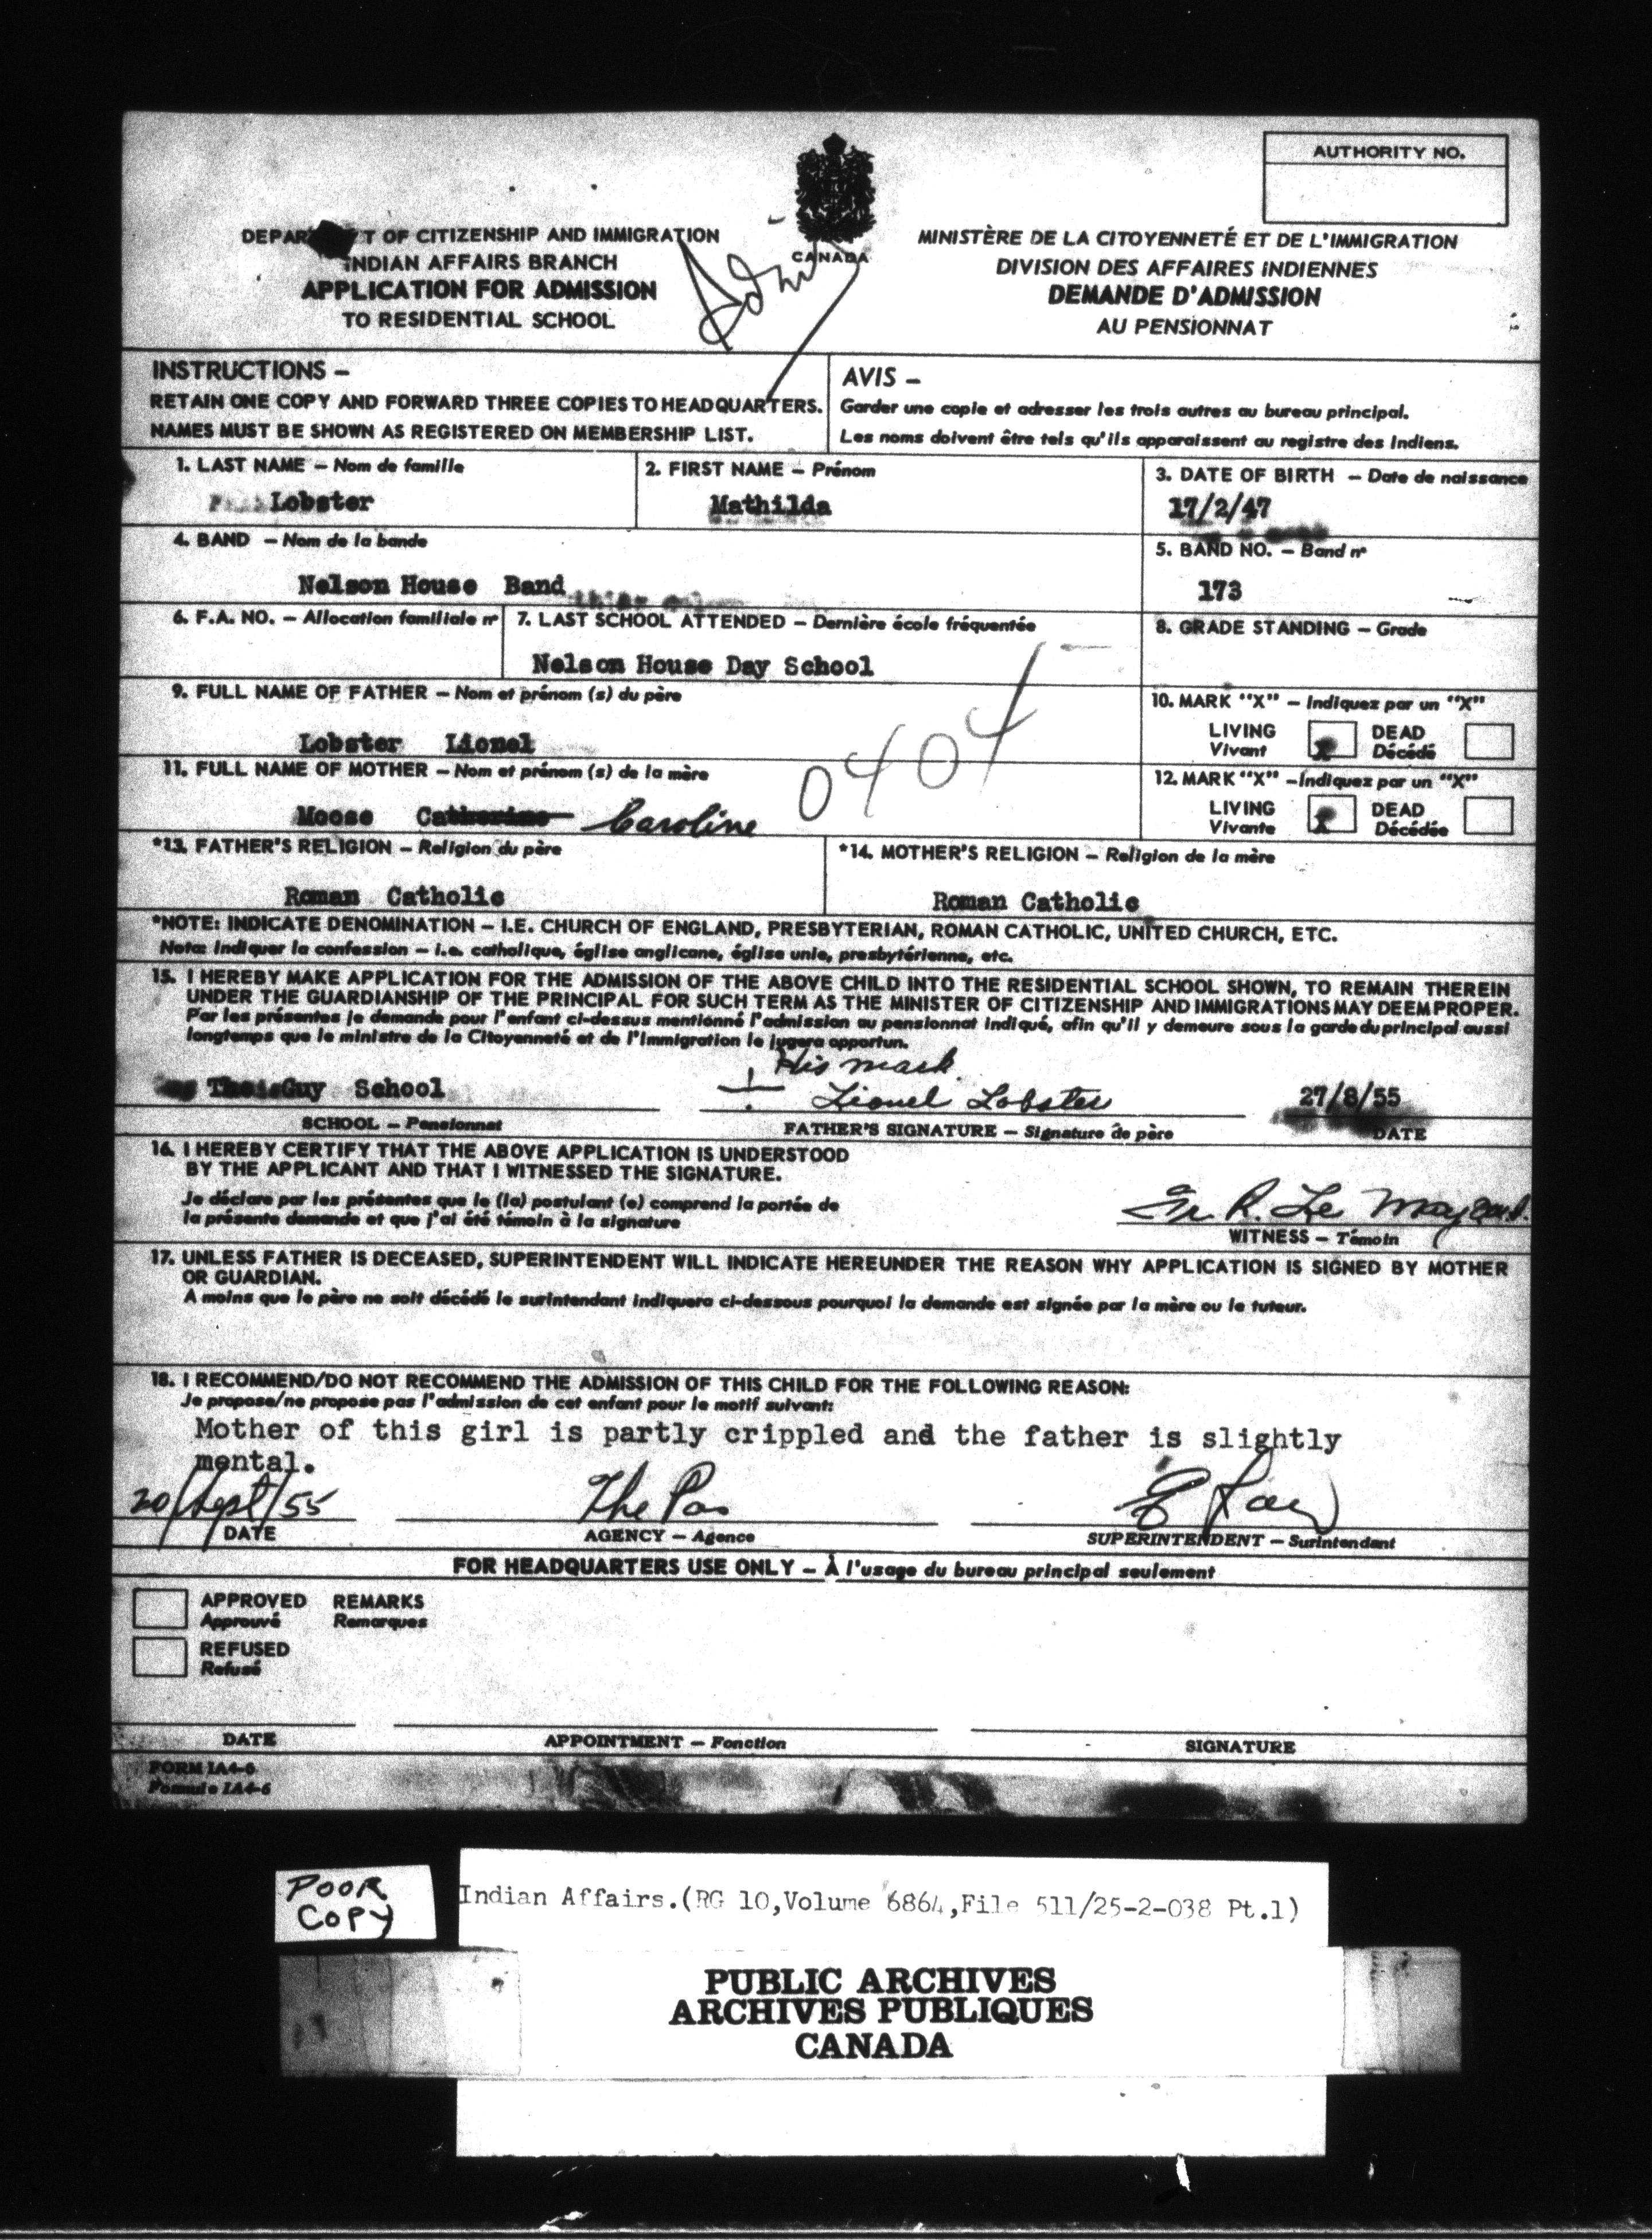 AUTHORITY NO.
DEPAR T OF CITIZENSHIP AND IMMIGRATION
INDIAN AFFAIRS BRANCH
APPLICATION FOR ADMISSION
TO RESIDENTIAL SCHOOL
CANADA
Adm
MINISTÈRE DE LA CITOYENNETÉ ET DE L'IMMIGRATION
DIVISION DES AFFAIRES INDIENNES
DEMANDE D'ADMISSION
AU PENSIONNAT
INSTRUCTIONS –
RETAIN ONE COPY AND FORWARD THREE COPIES TO HEADQUARTERS.
NAMES MUST BE SHOWN AS REGISTERED ON MEMBERSHIP LIST.
AVIS –
Garder une copie et adresser les trois autres au bureau principal.
Les noms doivent être tels qu'ils apparaissent au registre des Indiens.
1. LAST NAME – Nom de famille
Lobster
2. FIRST NAME – Prénom
Mathilda
3. DATE OF BIRTH – Date de naissance
17/2/47
4. BAND – Nom de la bande
Nelson House Band
5. BAND NO. – Band nº
173
6. F.A. NO. – Allocation familiale nº
7. LAST SCHOOL ATTENDED – Dernière école fréquentée
Nelson House Day School
8. GRADE STANDING – Grade
9. FULL NAME OF FATHER – Nom et prénom (s) du père
Lobster Lionel
10. MARK "X" – Indiquez par un "X"
LIVING
Vivant
x
DEAD
Décédé
0404
11. FULL NAME OF MOTHER – Nom et prénom (s) de la mère
Moose Catherine Caroline
12. MARK "X" – Indiquez par un "X"
LIVING
Vivante
x
DEAD
Décédée
*13. FATHER'S RELIGION – Religion du père
Roman Catholic
*14. MOTHER'S RELIGION – Religion de la mère
Roman Catholic
*NOTE: INDICATE DENOMINATION – I.E. CHURCH OF ENGLAND, PRESBYTERIAN, ROMAN CATHOLIC, UNITED CHURCH, ETC.
Nota: Indiquer la confession – i.e. catholique, église anglicane, église unie, presbytérienne, etc.
15. I HEREBY MAKE APPLICATION FOR THE ADMISSION OF THE ABOVE CHILD INTO THE RESIDENTIAL SCHOOL SHOWN, TO REMAIN THEREIN
UNDER THE GUARDIANSHIP OF THE PRINCIPAL FOR SUCH TERM AS THE MINISTER OF CITIZENSHIP AND IMMIGRATIONS MAY DEEM PROPER.
Par les présentes je demande pour l'enfant ci-dessus mentionné l'admission au pensionnat indiqué, afin qu'il y demeure sous la garde du principal aussi
longtemps que le ministre de la Citoyenneté et de l'Immigration le jugera opportun.
His mark
Guy School
Lionel Lobster
27/8/55
SCHOOL – Pensionnat
FATHER'S SIGNATURE – Signature de père
DATE
16. I HEREBY CERTIFY THAT THE ABOVE APPLICATION IS UNDERSTOOD
BY THE APPLICANT AND THAT I WITNESSED THE SIGNATURE.
Je déclare par les présentes que le (la) postulant (e) comprend la portée de
la présente demande et que j'ai été témoin à la signature
R. Le May
WITNESS – Témoin
17. UNLESS FATHER IS DECEASED, SUPERINTENDENT WILL INDICATE HEREUNDER THE REASON WHY APPLICATION IS SIGNED BY MOTHER
OR GUARDIAN.
A moins que le père ne soit décédé le surintendant indiquera ci-dessous pourquoi la demande est signée par la mère ou le tuteur.
18. I RECOMMEND/DO NOT RECOMMEND THE ADMISSION OF THIS CHILD FOR THE FOLLOWING REASON:
Je propose/ne propose pas l'admission de cet enfant pour le motif suivant:
Mother of this girl is partly crippled and the father is slightly
mental.
20/Sept/55
The Pas
DATE
AGENCY – Agence
SUPERINTENDENT – Surintendant
FOR HEADQUARTERS USE ONLY – À l'usage du bureau principal seulement
APPROVED REMARKS
Approuvé Remarques
REFUSED
Refusé
DATE
APPOINTMENT – Fonction
SIGNATURE
FORM IA4-6
Formule IA4-6
POOR
COPY
Indian Affairs.(RG 10,Volume 6864,File 511/25-2-038 Pt.1)
PUBLIC ARCHIVES
ARCHIVES PUBLIQUES
CANADA